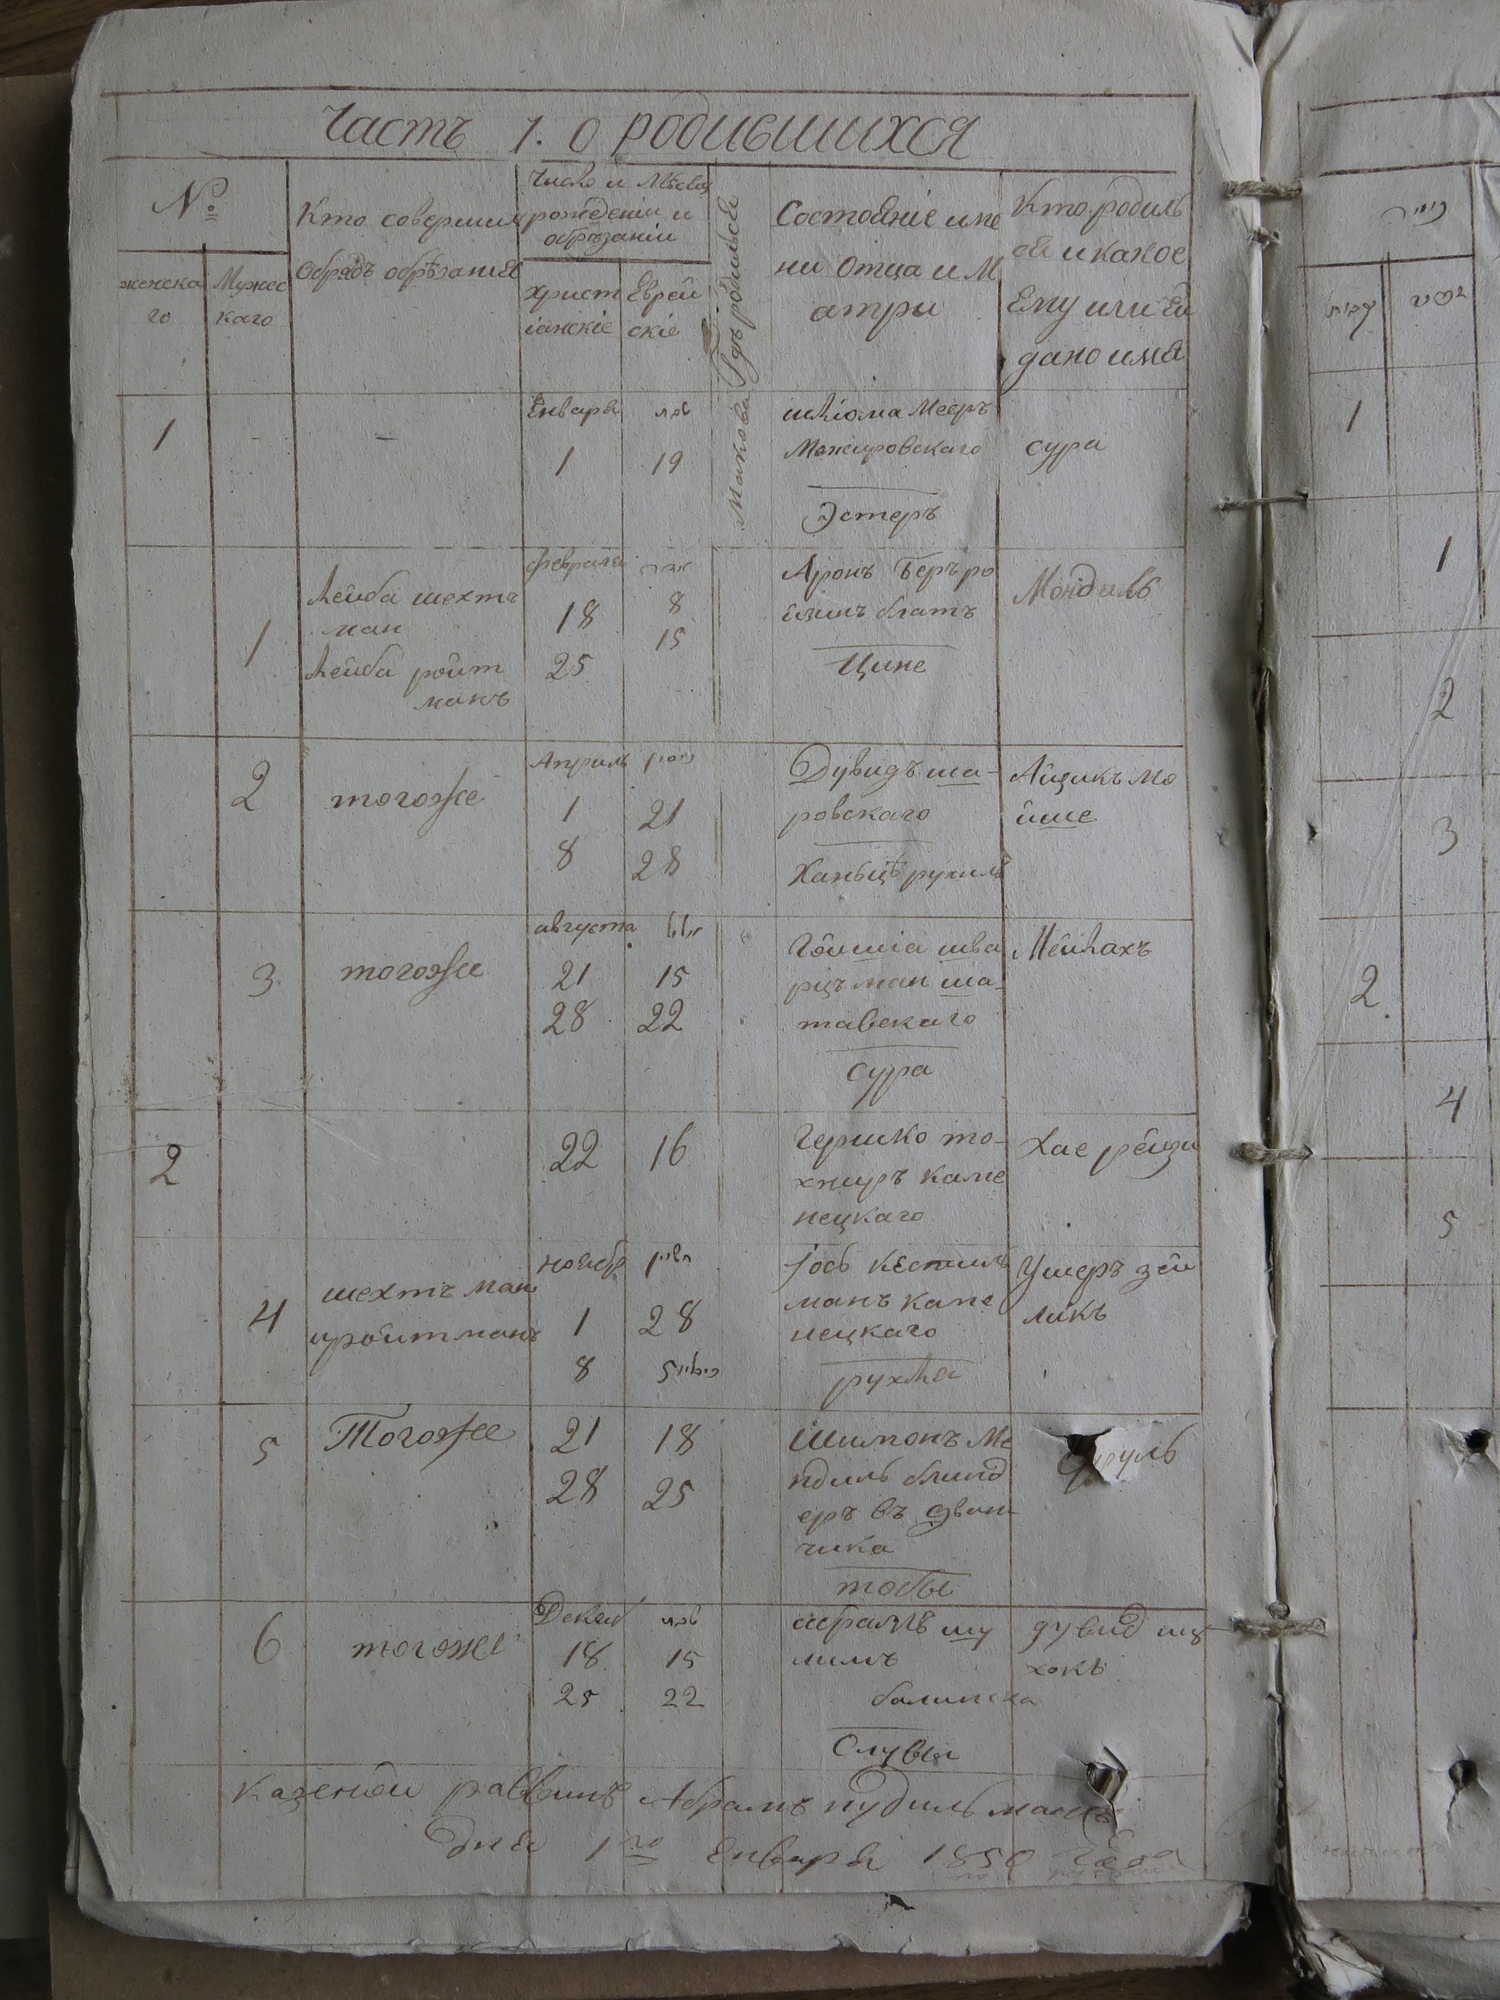 Часть 1. о родившихся
№
женска
го
Мужес
каго
Кто совершилъ
Обрядъ обрѣзанія
Число и Мѣсяцъ
рожденіи и
обрѣзаніи
христ
іанскіе
Еврей
скіе
Гдѣ родился
Состояніе име
ни Отца и М
атри
Кто родил
ся и какое
Ему или Ей
дано имя
1
-
-
Енваря
1
19
Макова
шліома Мееръ
Можаровскаго
Эстеръ
сура
1
Лейба шехтъ
ман
Лейба ройт
манъ
февраля
18
25
אדר
8
15
Аронъ Беръ ро
йзинъ блатъ
Цине
Мондиль
2
тогоже
Априль
1
8
ניסן
21
28
Дувидъ ша-
ровскаго
Ханьцѣ рухиль
Айцикъ мо
йше
3
тогоже
августа
21
28
אלול
15
22
Гойшіа шва
рцъ ман ша-
тавскаго
сура
Мейлахъ
2
22
16
Гершко то-
хниръ каме
нецкаго
Хае рейзи
4
шехтъ ман
иройтманъ
ноябр
1
8
חשון
28
5 כסליו
Іось кестиль
манъ каме
нецкаго
рухля
Ушеръ зей
ликъ
5
Тогоже
21
28
18
25
Шимонъ Ме
ндиль блинд
еръ въ двои
чика
тобы
сруль
6
тогоже
Декаб
18
25
טבת
15
22
абрамъ шу
лимъ
балинска
Слувы
дувид иц
хокъ
казеной раввинъ Абрамъ нудильманъ
Дня 1го Енваря 1850 года
1
1
2
3
2
4
5